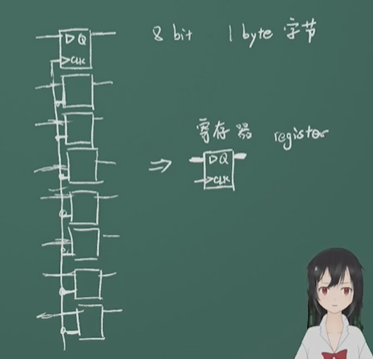 D Q 8 bit 1 byte 字节
>CLK
寄存器 register
D Q
>CLK